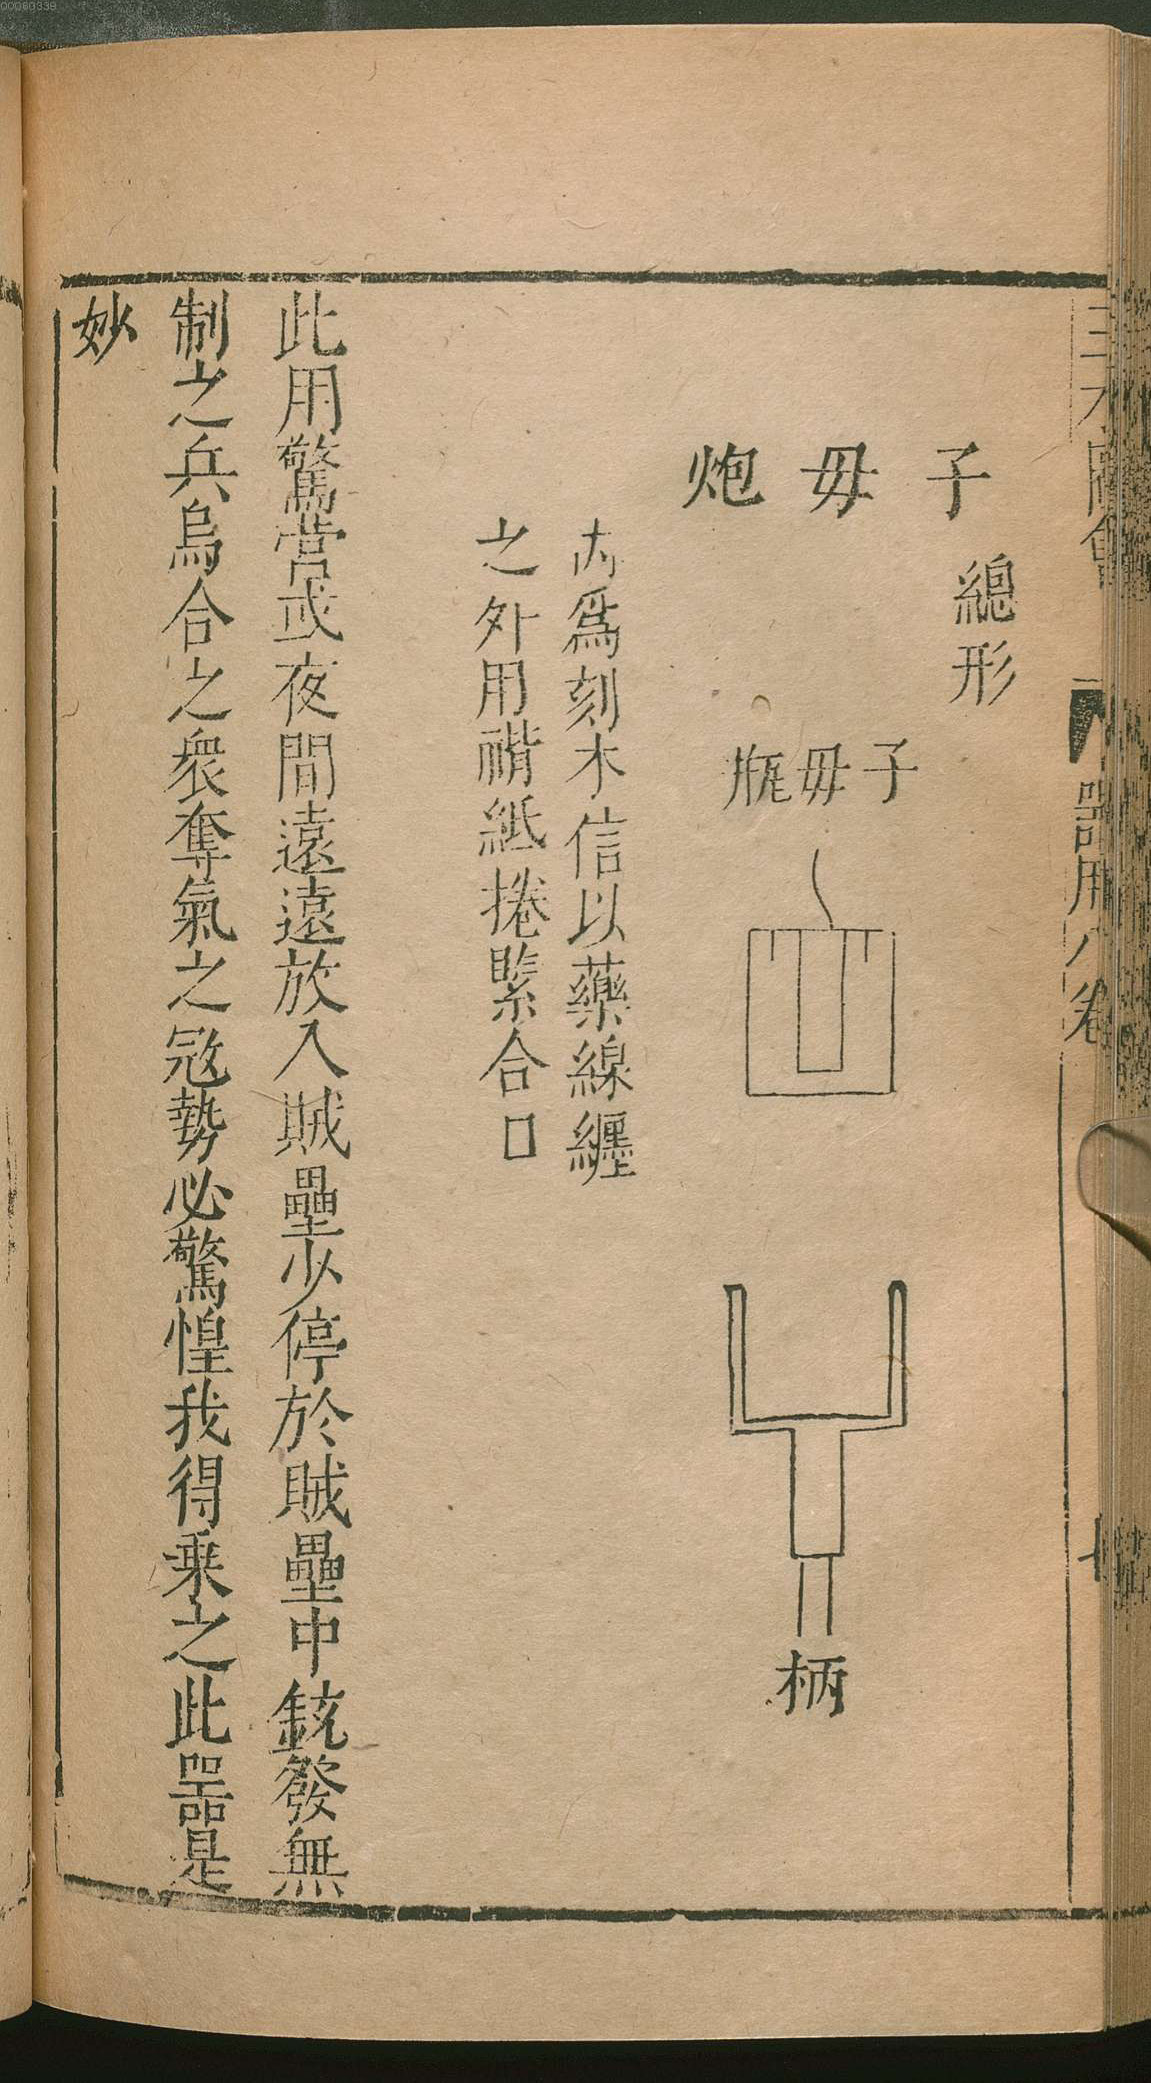 三才圖會 器用八卷
子母炮
總形
子母瓶
柄
內爲刻木信以藥線纏
之外用褙紙捲緊合口
此用驚營或夜間遠遠放入賊壘少停於賊壘中銃發無
制之兵烏合之衆奪氣之寇勢必驚惶我得乘之此器是
妙
00060339